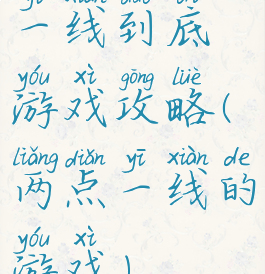 yī xiàn dào dǐ
一线到底
yóu xì gōng lüè
游戏攻略(
liǎng diǎn yī xiàn de
两点一线的
yóu xì
游戏)